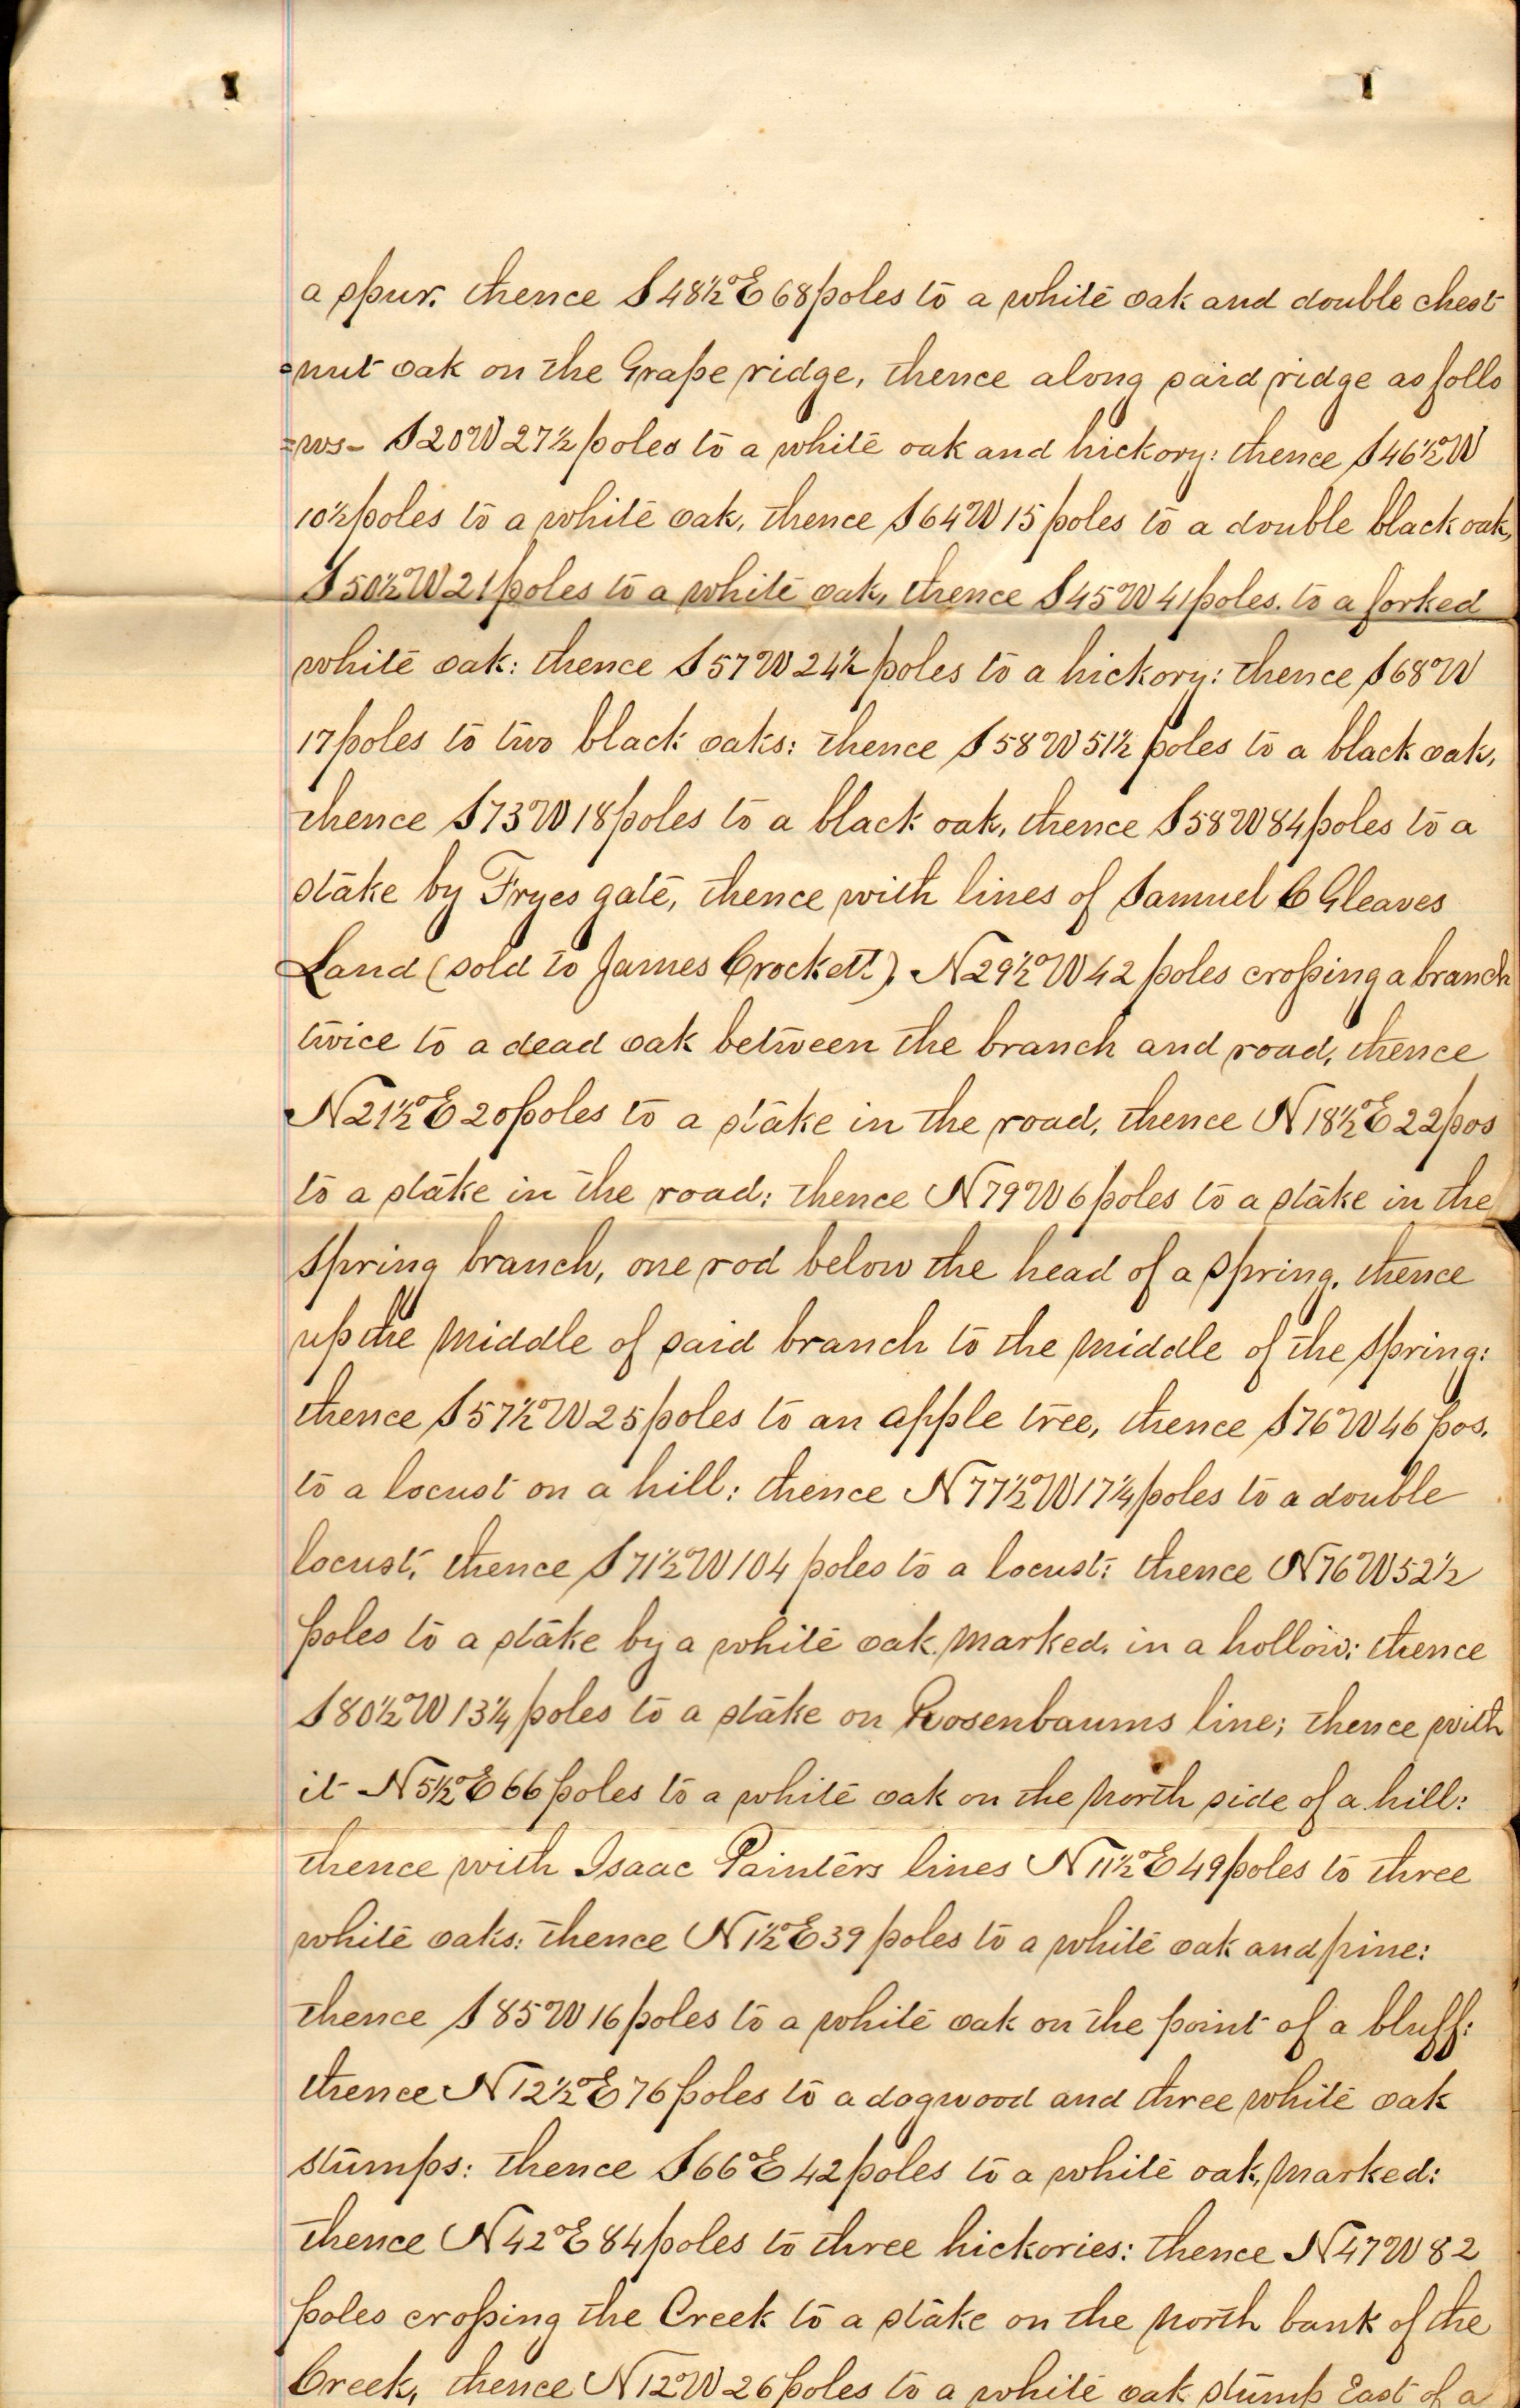 a spur. thence S 48½° E 68 poles to a white oak and double chest
=nut oak on the Grape ridge, thence along said ridge as follo
=ws- S 20° W 27½ poles to a white oak and hickory: thence S 46½° W
10½ poles to a white oak, thence S 64° W 15 poles to a double black oak,
S 50½° W 21 poles to a white oak, thence S 45° W 41 poles. to a forked
white oak: thence S 57° W 24½ poles to a hickory: thence S 68° W
17 poles to two black oaks: thence S 58° W 51½ poles to a black oak,
thence S 73° W 18 poles to a black oak, thence S 58° W 84 poles to a
stake by Fryes gate, thence with lines of Samuel C Gleaves
Land (sold to James Crockett). N 29½° W 42 poles crossing a branch
twice to a dead oak between the branch and road, thence
N 21½° E 20 poles to a stake in the road, thence N 18½° E 22 pos
to a stake in the road: thence N 79° W 6 poles to a stake in the
Spring branch, one rod below the head of a Spring. thence
up the middle of said branch to the middle of the Spring:
thence S 57½° W 25 poles to an apple tree, thence S 76° W 46 pos.
to a locust on a hill: thence N 77½° W 17¼ poles to a double
locust, thence S 71½° W 104 poles to a locust: thence N 76° W 52½
poles to a stake by a white oak. marked. in a hollow: thence
S 80½° W 13¼ poles to a stake on Rosenbaums line; thence with
it N 5½° E 66 poles to a white oak on the north side of a hill:
thence with Isaac Painters lines N 11½° E 49 poles to three
white oaks: thence N 1½° E 39 poles to a white oak and pine:
thence S 85° W 16 poles to a white oak on the point of a bluff:
thence N 12½° E 76 poles to a dogwood and three white oak
stumps: thence S 66° E 42 poles to a white oak, marked:
thence N 42° E 84 poles to three hickories: thence N 47° W 82
poles crossing the Creek to a stake on the north bank of the
Creek, thence N 12° W 26 poles to a white oak stump East of a